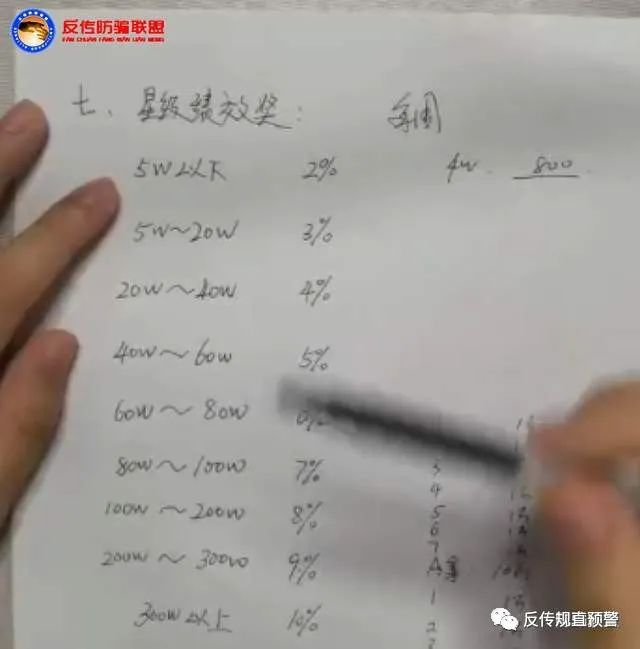 反传防骗联盟
七、星级绩效奖: 每周
5W以下 2% 4W. 800.
5W～20W 3%
20W～40W 4%
40W～60W 5%
60W～80W
80W～100W 7%
3
4
100W～200W 8%
5
6
7
200W～300W 9%
300W以上 10%
1
2
反传规直预警